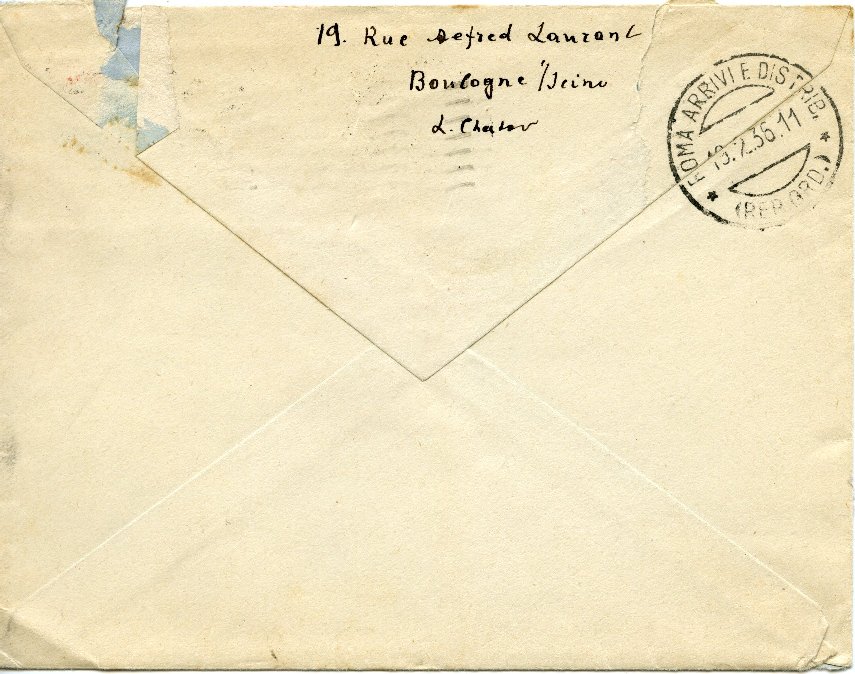 19. Rue Aefred Laurant
Boulogne s/Seine
L. Chestov
ROMA ARRIVI E DISTRIB.
19.2.36.11
(REP. ORD.)